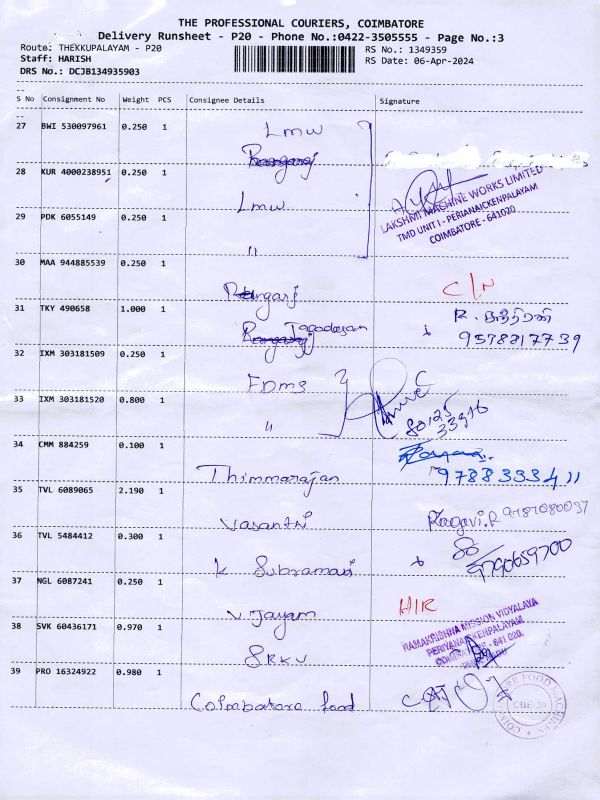 THE PROFESSIONAL COURIERS, COIMBATORE
Delivery Runsheet - P20 - Phone No.:0422-3505555 - Page No.:3
Route: THEKKUPALAYAM - P20
RS No.: 1349359
Staff: HARISH
RS Date: 06-Apr-2024
DRS No.: DCJB134935903
S No Consignment No Weight PCS Consignee Details Signature
27 BWI 530097961 0.250 1 Lmw
28 KUR 4000238951 0.250 1 Lmw
LAKSHMI MACHINE WORKS LIMITED
TMD UNIT I - PERIANAICKENPALAYAM
COIMBATORE - 641020
29 PDK 6055149 0.250 1 "
30 MAA 944885539 0.250 1 Rangarj C/N
31 TKY 490658 1.000 1 Jagadesan
9578817739
32 IXM 303181509 0.250 1 FDMS
33 IXM 303181520 0.800 1 "
80125
33916
34 CMM 884259 0.100 1 Thimmarajan 9788333411
35 TVL 6089065 2.190 1 Vasanthi Ragavi.R 9787080037
36 TVL 5484412 0.300 1 K Subramani 8790659700
37 NGL 6087241 0.250 1 Vijayam H/R
38 SVK 60436171 0.970 1 SRKV
RAMAKRISHNA MISSION VIDYALAYA
PERIYANAICKENPALAYAM
COIMBATORE - 641 020.
39 PRO 16324922 0.980 1 Coimbatore food
CBE-20